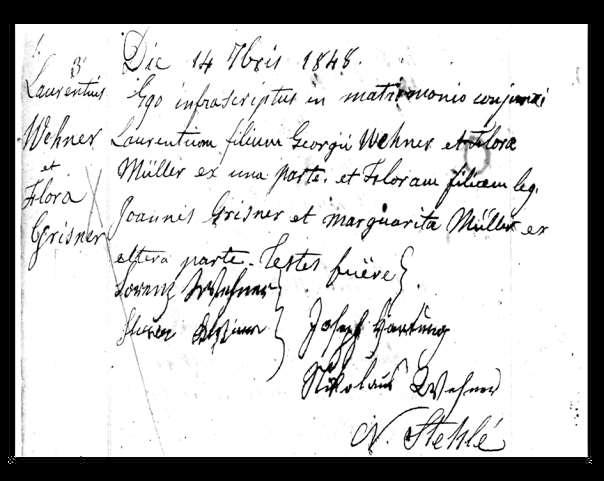 3
Laurentius
Wehner
et
Flora
Grisner
Die 14 7bris 1848.
Ego infrascriptus in matrimonio conjunxi
Laurentium filium Georgii Wehner et Flora
Müller ex una parte. et Floram filiam leg.
Joannis Grisner et marguarita Müller ex
altera parte. Testes fuëre
Lorenz Wehner
Joseph Hartung
Nikolaus Wehner
N. Stehlé